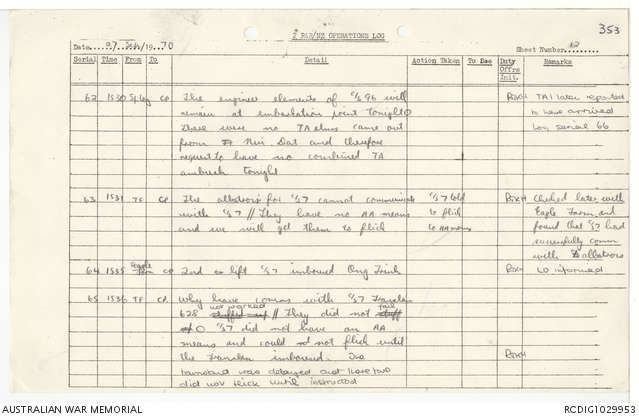 353
2 RAR/NZ OPERATIONS LOG
Date 07 Feb 1970 Sheet Number 12
Serial Time From To Detail Action Taken To Do Duty Offrs Init. Remarks
62 1530 CP The engineer elements of C/S 96 will
remain at embarkation point tonight
These were no TA elms came out TA1 later reported
from Nui Dat and therefore to have arrived
request to have no combined TA Log serial 66
ambush tonight
63 1531 TF CP The albatross for C/S 7 cannot communicate C/S 7 told Checked later with
with C/S 7 // They have no AA means to flick Eagle Farm and
and we will get them to flick to AA means found that C/S 7 had
successfully comm
with albatross
64 1535 Eagle Farm CP 2nd lift C/S 7 inbound Ong Trinh LO informed
65 1536 TF CP Why have comms with C/S 7
628 not worked // They did not
C/S 7 did not have an AA
means and could not flick until
the inbound. The
was delayed and
did not flick until instructed
AUSTRALIAN WAR MEMORIAL RCDIG1029953